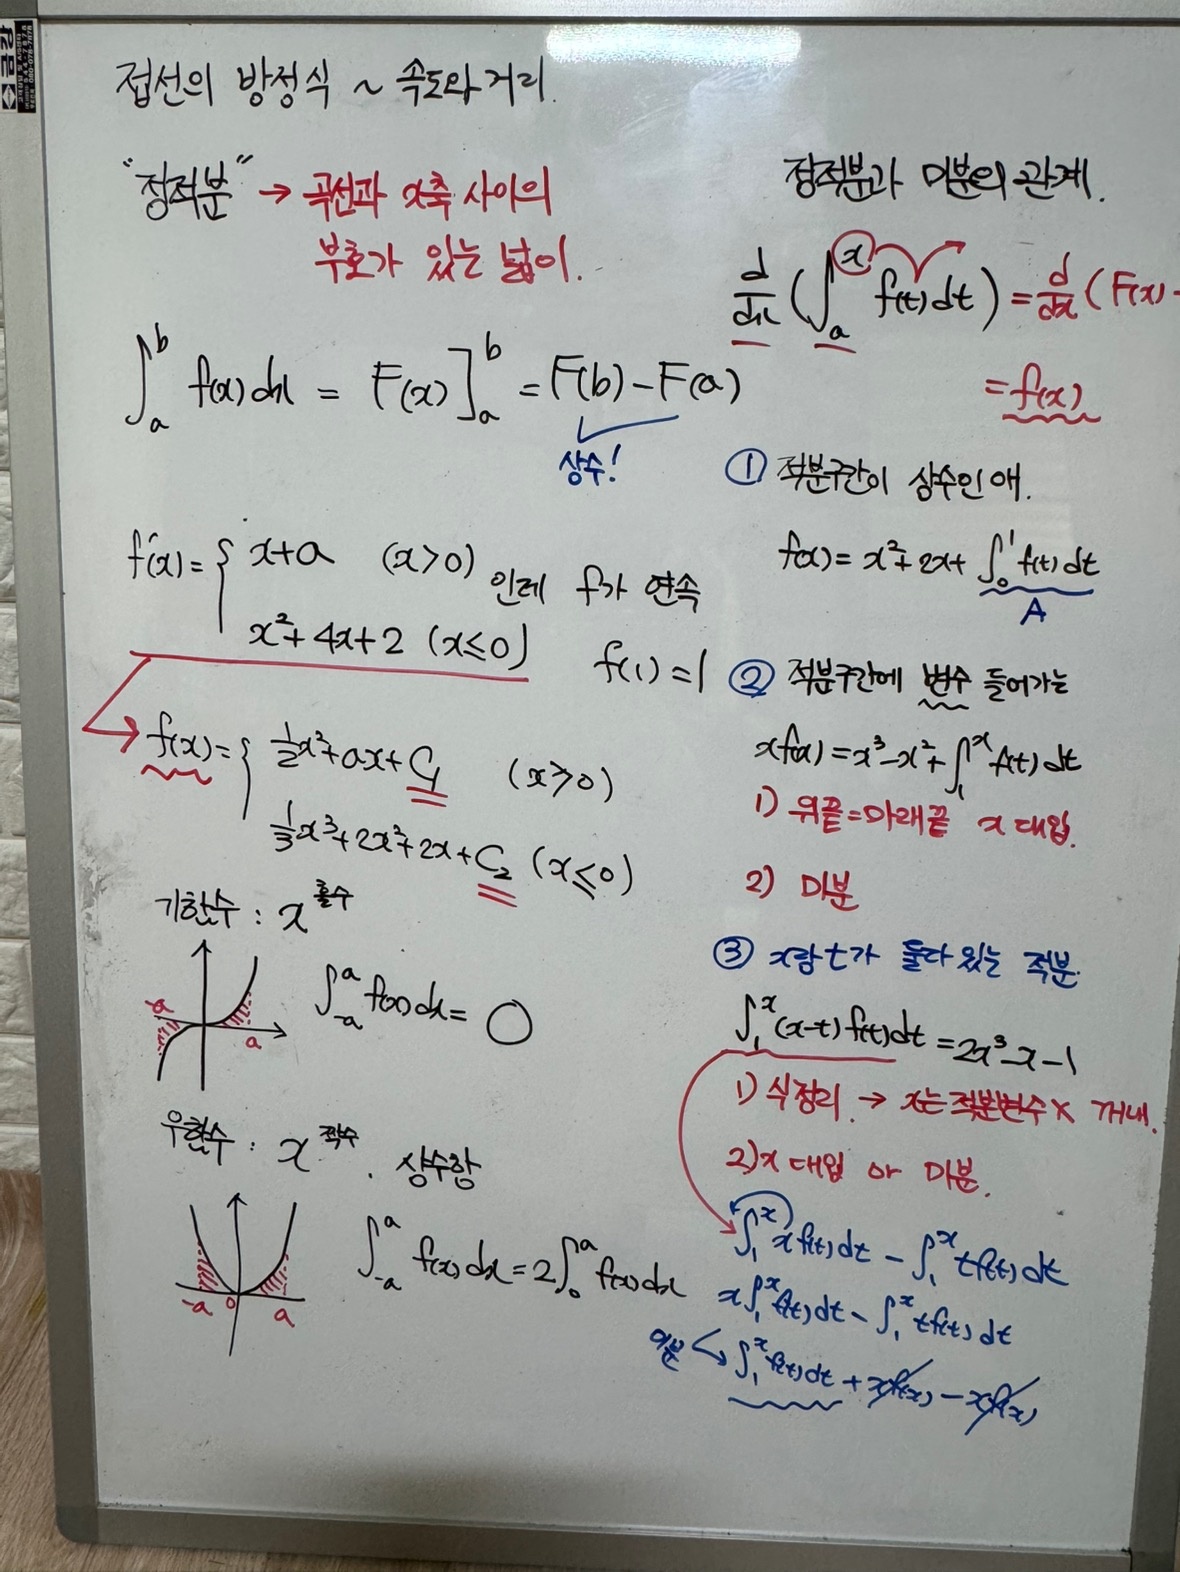 접선의 방정식 ~ 속도와 거리.
"정적분" → 곡선과 x축 사이의
부호가 있는 넓이.
∫_a^b f(x)dx = F(x)]_a^b = F(b)-F(a)
상수!
f'(x)= { x+a (x>0)
x²+4x+2 (x≤0)
인데 f가 연속
f(1)=1
→ f(x)= { ½x²+ax+C₁ (x≥0)
⅓x³+2x²+2x+C₂ (x≤0)
기함수 : x^홀수
-a a
∫_{-a}^a f(x)dx = 0
우함수 : x^짝수 . 상수항
-a 0 a
∫_{-a}^a f(x)dx = 2∫_0^a f(x)dx
정적분과 미분의 관계.
d/dx (∫_a^x f(t)dt) = d/dx (F(x)-
= f(x)
① 적분구간이 상수인 애.
f(x)= x²+2x+ ∫_0^1 f(t)dt
A
② 적분구간에 변수 들어가는
xf(x) = x³-x²+∫_1^x f(t)dt
1) 위끝=아래끝 x 대입.
2) 미분
③ x랑 t가 둘다 있는 적분.
∫_1^x (x-t)f(t)dt = 2x³-x-1
1) 식정리 → x는 적분변수 X 꺼내.
2) x 대입 or 미분.
∫_1^x xf(t)dt - ∫_1^x tf(t)dt
x∫_1^x f(t)dt - ∫_1^x tf(t)dt
미분 → ∫_1^x f(t)dt + xf(x) - xf(x)